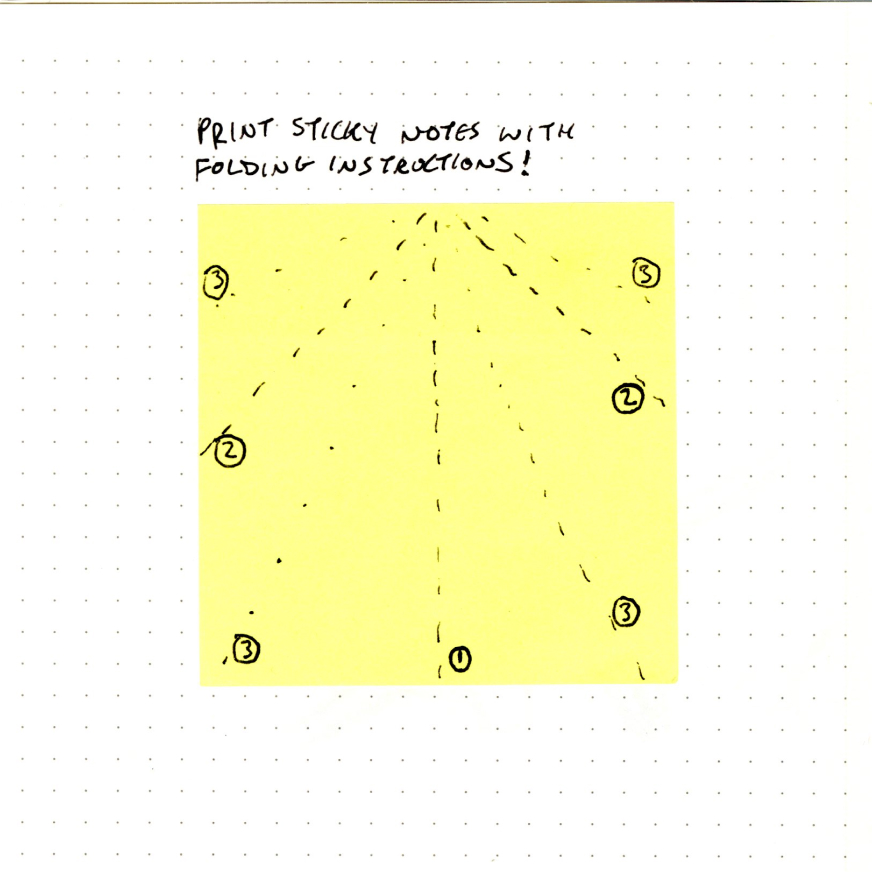 PRINT STICKY NOTES WITH
FOLDING INSTRUCTIONS!
3 3
2
2
3
3
1